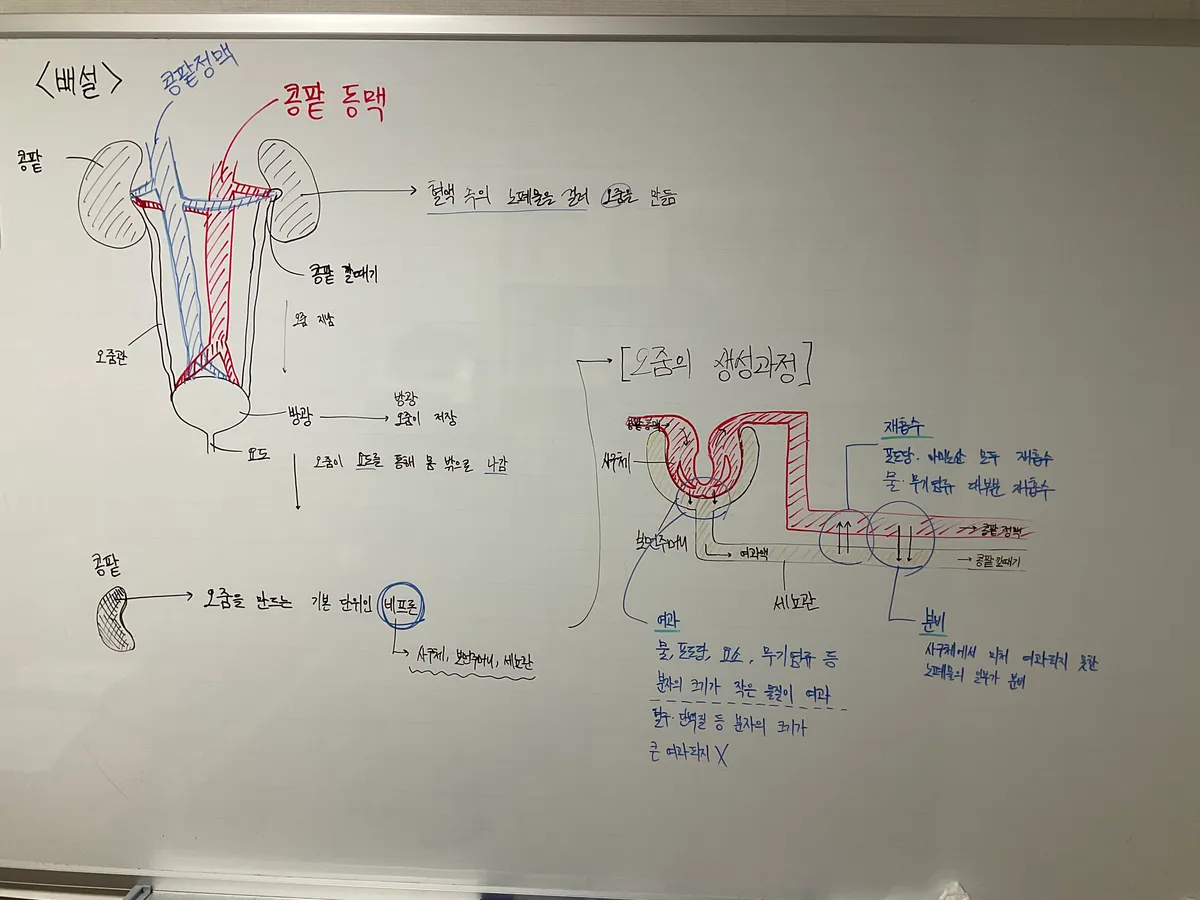 <배설>
콩팥정맥
콩팥 동맥
콩팥
혈액 속의 노폐물을 걸러 오줌을 만듦
콩팥 깔때기
오줌 지남
오줌관
방광
방광
오줌이 저장
요도
오줌이 요도를 통해 몸 밖으로 나감
콩팥
오줌을 만드는 기본 단위인 네프론
사구체, 보먼주머니, 세뇨관
[오줌의 생성과정]
콩팥 동맥→
사구체
보먼주머니
여과액
세뇨관
→콩팥 정맥
→콩팥 깔때기
재흡수
포도당·아미노산 모두 재흡수
물·무기염류 대부분 재흡수
여과
물, 포도당, 요소, 무기염류 등
분자의 크기가 작은 물질이 여과
혈구·단백질 등 분자의 크기가
큰 여과되지 X
분비
사구체에서 미처 여과되지 못한
노폐물의 일부가 분비